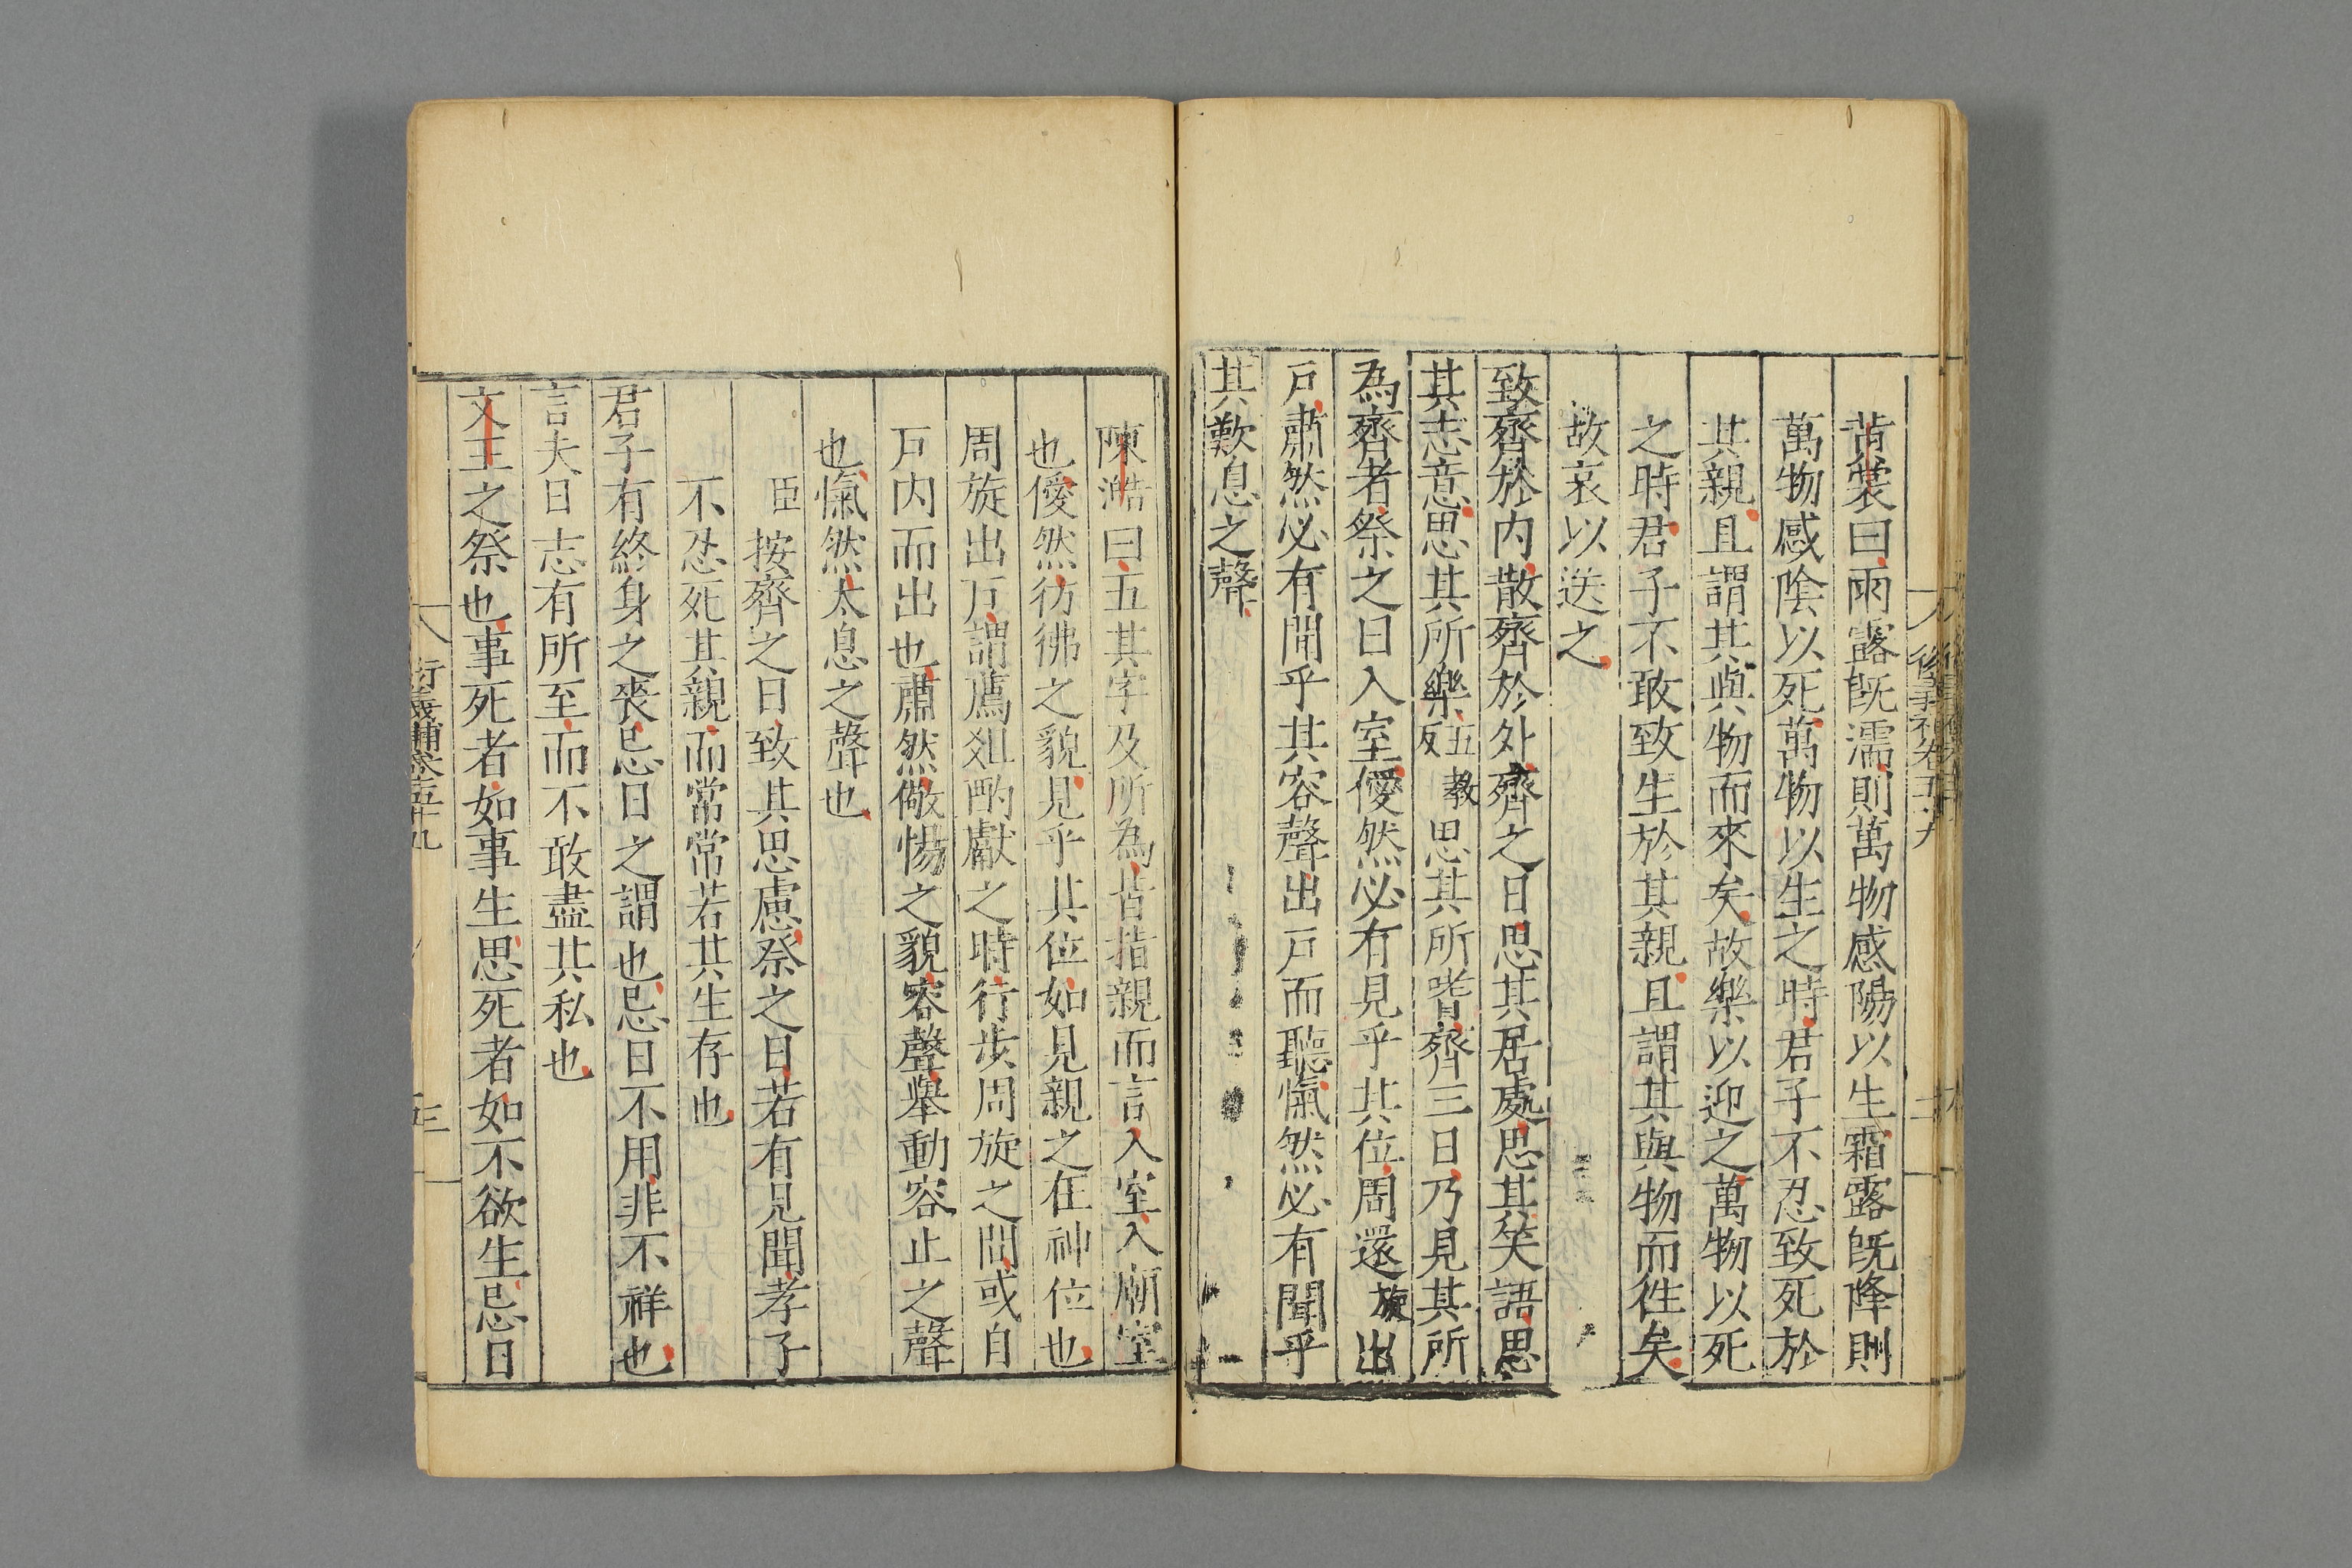 黄裳曰雨露既濡則萬物感陽以生霜露既降則
萬物感陰以死萬物以生之時君子不忍致死於
其親且謂其與物而來矣故樂以迎之萬物以死
之時君子不敢致生於其親且謂其與物而徃矣
故哀以送之
致齊於内散齊於外齊之日思其居處思其笑語思
其志意思其所樂五教反思其所嗜齊三日乃見其所
為齊者祭之日入室僾然必有見乎其位周還旋出
戶肅然必有聞乎其容聲出戶而聽愾然必有聞乎
其歎息之聲
陳澔曰五其字及所為皆指親而言入室入廟室
也僾然彷彿之貌見乎其位如見親之在神位也
周旋出戶謂薦俎酌獻之時行步周旋之間或自
戶内而出也肅然儆惕之貌容聲舉動容止之聲
也愾然太息之聲也
臣按齊之日致其思慮祭之日若有見聞孝子
不忍死其親而常常若其生存也
君子有終身之喪忌日之謂也忌日不用非不祥也
言夫日志有所至而不敢盡其私也
文王之祭也事死者如事生思死者如不欲生忌日
衍義補卷五十九